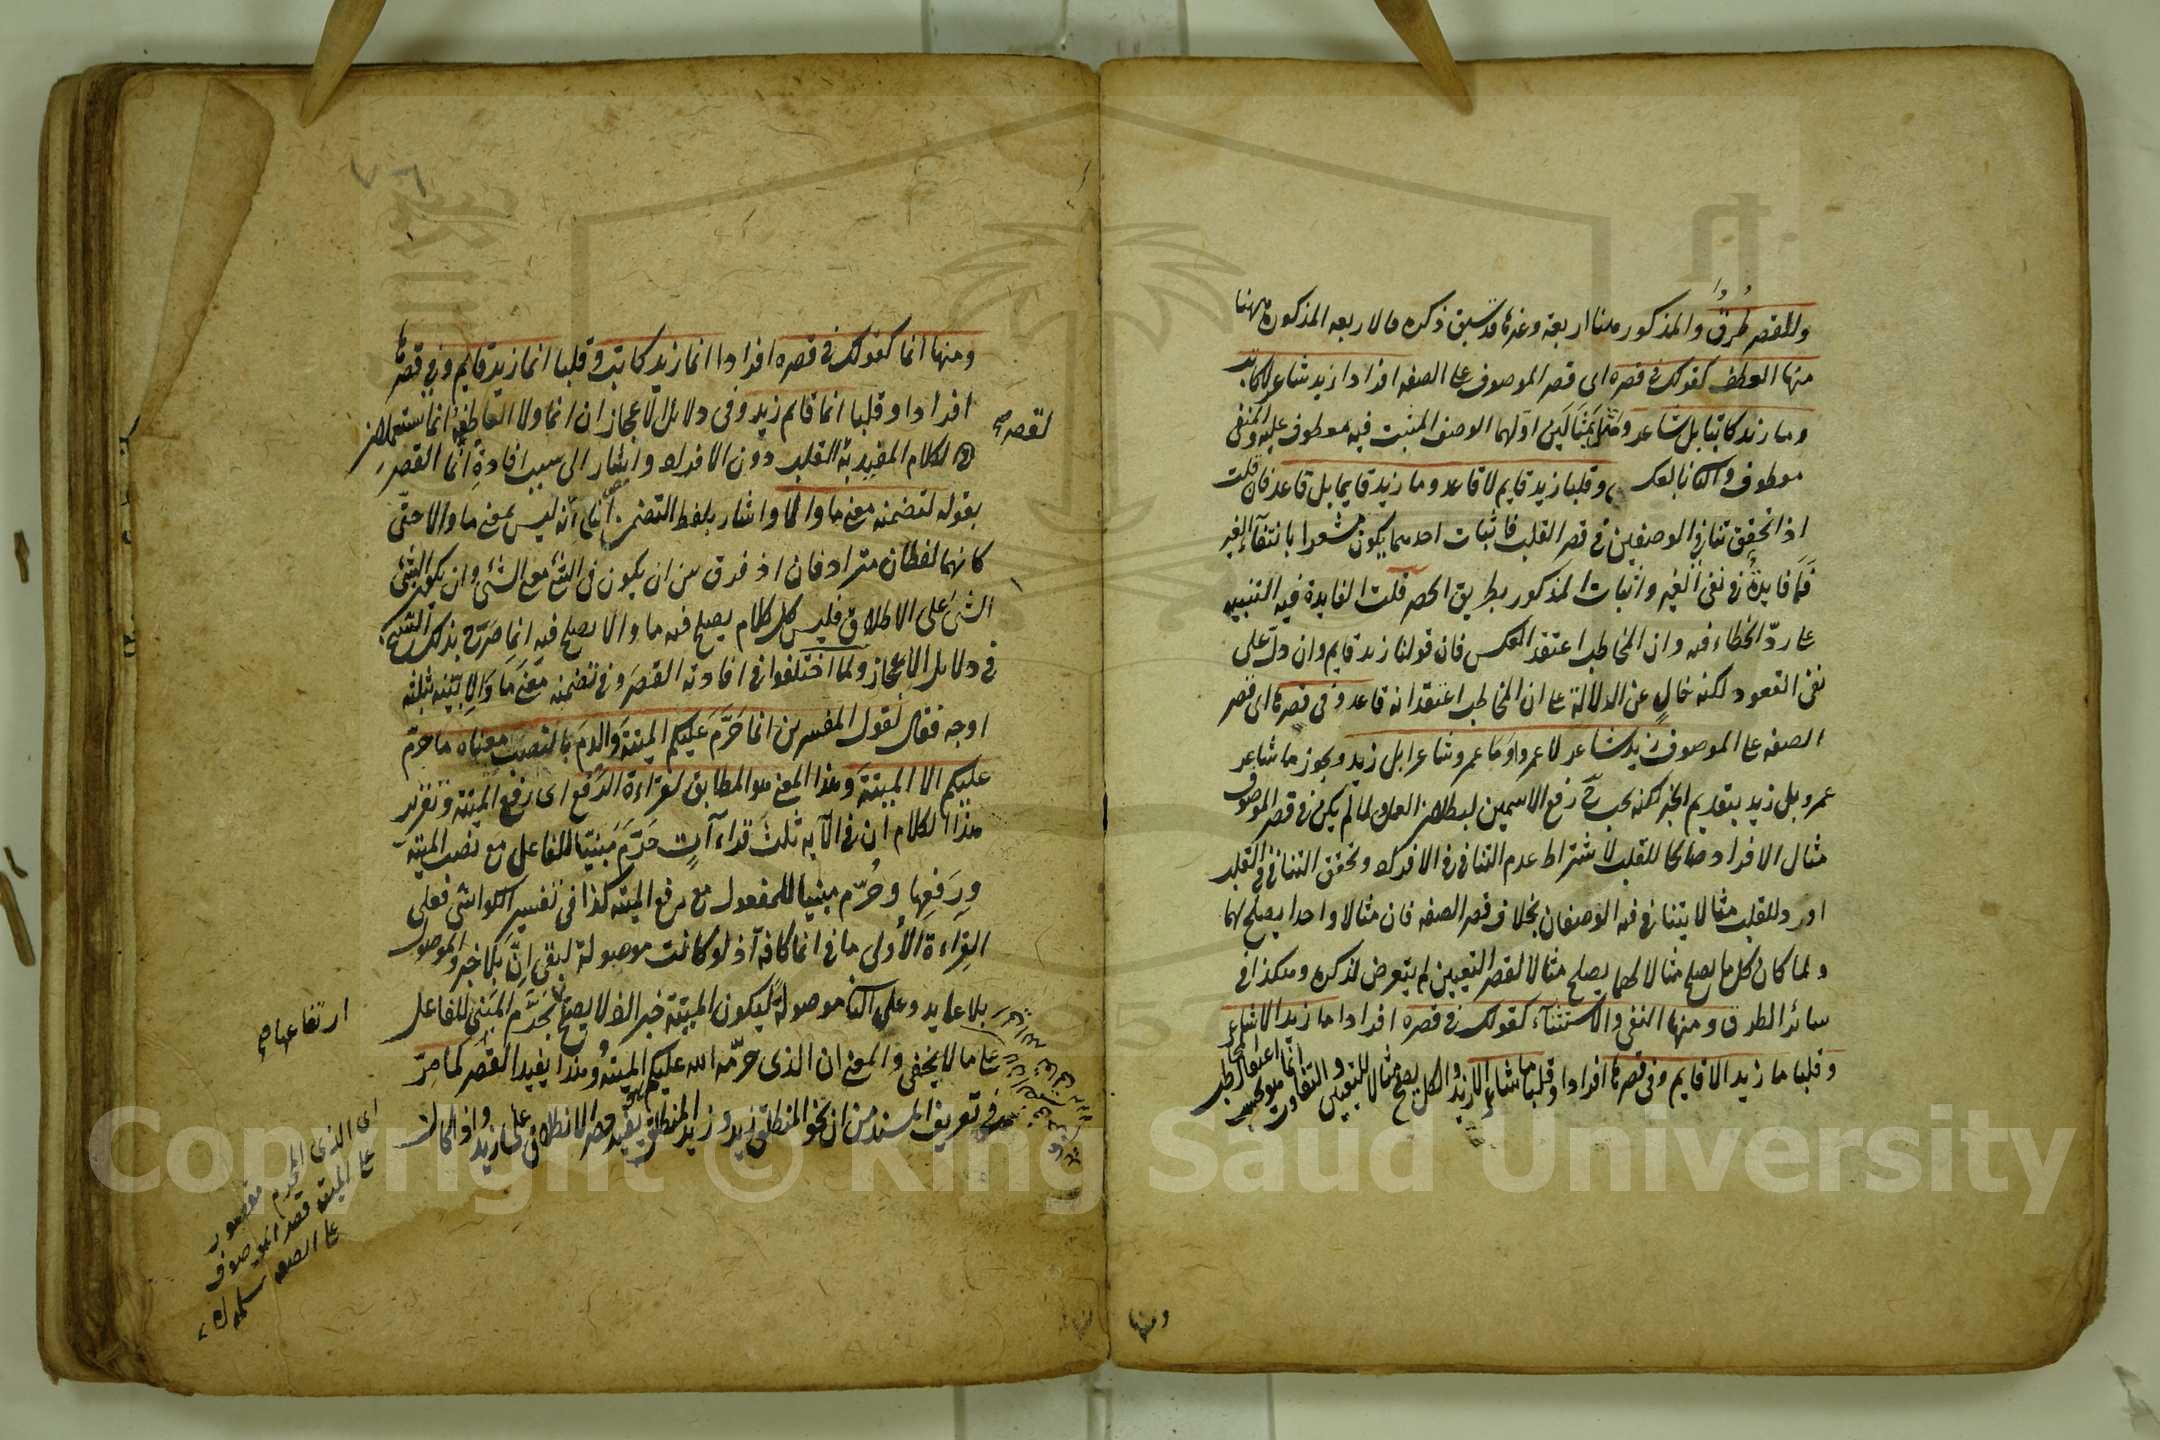 وللقصر طُرقٌ والمذكور ههنا اربعة وغيرها قد سبق ذكره فالاربعة المذكورة ههنا
منها العطف كقولك في قصره اى قصر الموصوف على الصفه افرادا زيد شاعر لا كاتب
وما زيد كاتبا بل شاعر ومَثَّلَ بمثالَين اوّلهما الوصف المثبت فيه معطوف عليه والمنفى
معطوف والثانى بالعكس وقلبا زيد قايم لا قاعد وما زيد قايما بل قاعد فان قلت
اذا تحقق تنافي الوصفين في قصر القلب فاثبات احدهما يكون مشعرا بانتفاء الغير
فَمَا فايدةُ نفى الغير واثبات المذكور بطريق الحصر قلت الفايدة فيه التنبيه
على ردّ الخطاء فيه وان المخاطب اعتقد العكس فان قولنا زيد قايم وان دلّ على
نفى القعود لكنه خالٍ عن الدلالة على ان المخاطب اعتقد انه قاعد وفى قصرها اى قصر
الصفه على الموصوف زيد شاعر لا عمرو او مَا عمرو شاعرا بل زيد ويجوز ما شاعر
عمرو بل زيد بتقديم الخبر لكنه يجب ح رفع الاسمين لبطلان العمل ولما لم يكن في قصر الموصوف
مثال الافراد صالحا للقلب لاشتراط عدم التنافى في الافراد وتحقق التنافي في القلب
اورد للقلب مثالا يتنافى فيه الوصفان بخلاف قصر الصفه فان مثالا واحدا يصلح لهما
ولما كان كل ما يصلح مثالا لهما يصلح مثالا لقصر التعيين لم يتعرض لذكره وهكذا في
سائر الطرق ومنها النفى والاستثناء كقولك في قصره افرادا ما زيد الا شاعر
وقلبا ما زيد الا قايم وفى قصرها افرادا وقلبا ما شاعر الا زيد والكل يصلح مثالا للتعيين والتفاوت انما هو بحسب اعتقاد المخاطب
ومنها
ومنها انما كقولك في قصره افرادا انما زيد كاتب وقلبا انما زيد قايم وفي قصرها
افرادا وقلبا انما قائم زيد وفى دلائل الاعجاز ان انما ولا العاطفة انما تستعملان
في الكلام المفيد به القلب دون الافراد واشار الى سبب افادةِ انّما القصر
لقصر صح
بقوله لتضمنه معنى ما والا واشار بلفظ التضمن الى انه ليس بمعنى ما والا حتّى
كانهما لفظان مترادفان اذ فرق بين ان يكون في الشئ معنى الشئ وان يكون الشئ
الشئ على الاطلاق فليس كل كلام يصلح فيه ما والا يصلح فيه انما صَرّح بذلك الشيخ
في دلايل الاعجاز ولما اختلفوا في افادته القصَر وفي تضمنه معنى مَا وَالا بيّنه بثلثه
اوجه فقال لقول المفسرين انما حَرَّمَ عَلَيكم الميتةَ وَالدمَ بالنصب معناه ما حرّم
عليكم الا الميتةَ وهذا المعنى هو المطابق لقراءة الرفع اى رفع الميتة وتقرير
هذا الكلام ان في الآيه ثلث قراءآت حَرَّمَ مَبنيّا للفاعل مع نصب الميتة
ورَفعِها وحُرّم مبنيا للمفعول مع رفع الميته كذا في تفسير الكواشى فعلى
القراءة الاُولى ما في انما كافه اذ لو كانت موصولة لبقى اِنَّ بلا خبر والموصول
بلا عايد وعلى الثانى موصولة ليكون الميتة خبرا اذ لا يصح ارتفاعها بحَرَّم المبنى للفاعل
ارتفاعها صح
على ما لا يخفى والمعنى ان الذى حرّمه الله عليكم هو الميتةُ وهذا يفيد القصر لما مرّ
في تعريف المسند من ان نحو المنطلق زيد وزيد المنطلق يفيد حصر الانطلاق على زيد واذا كان
اى الذى المحرم مقصور
على الميتة قصر الموصوف
على الصفه
Copyright © King Saud University